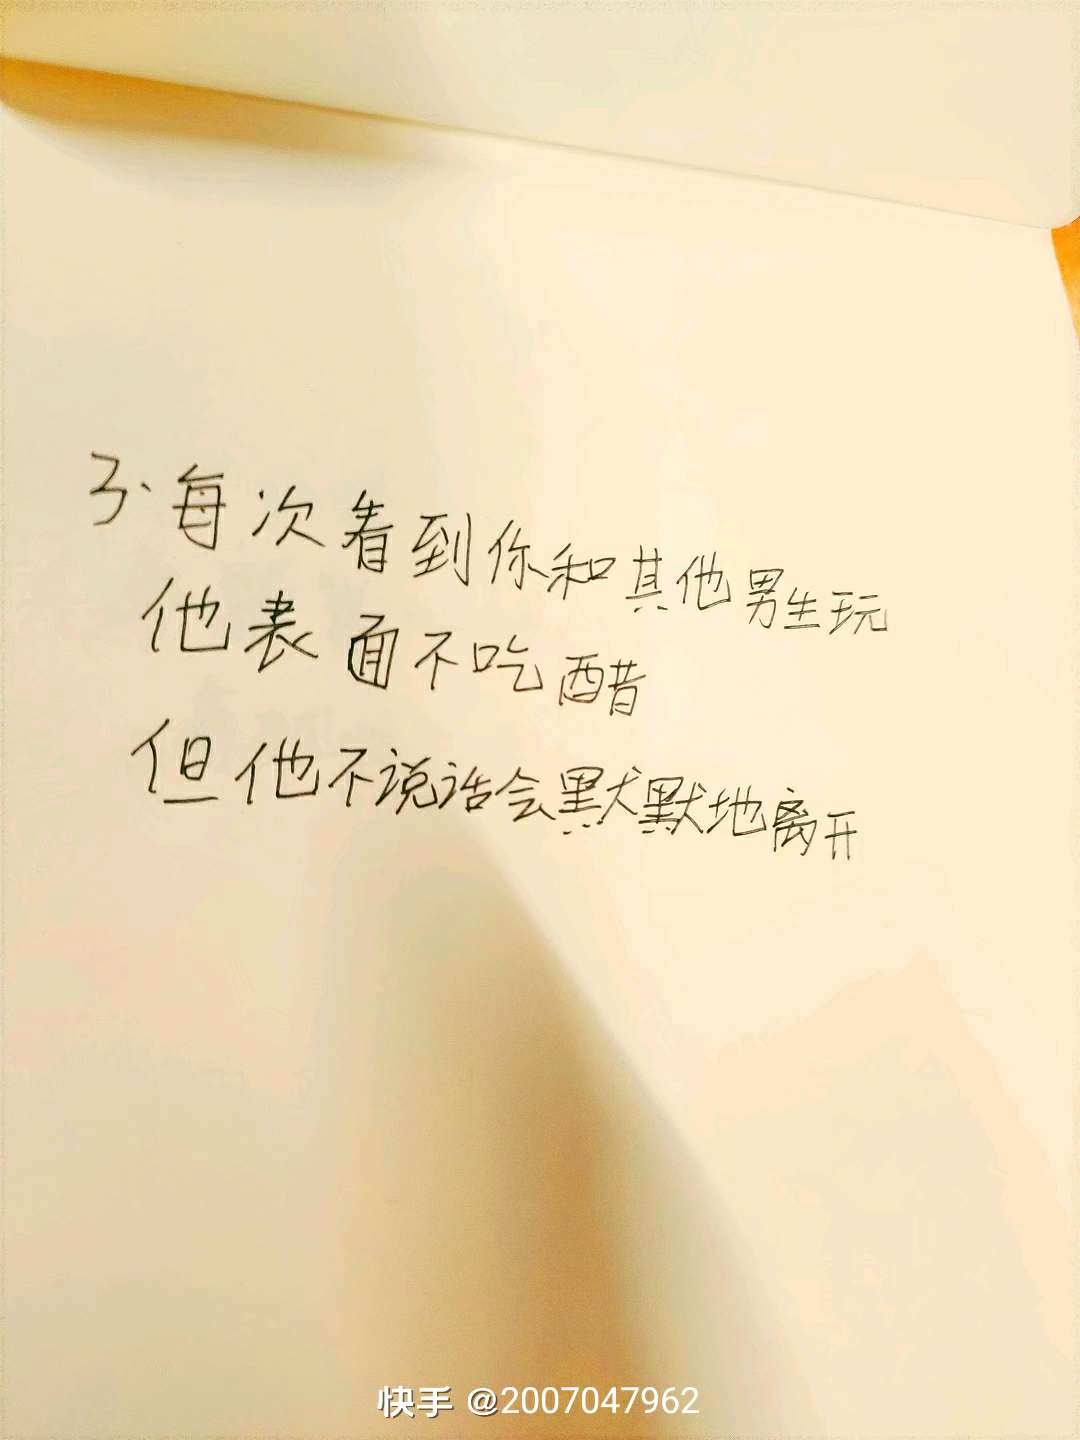 3.每次看到你和其他男生玩
他表面不吃醋
但他不说话会默默地离开
快手 @2007047962